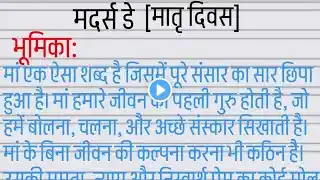 मदर्स डे [मातृ दिवस]
भूमिका:
मां एक ऐसा शब्द है जिसमें पूरे संसार का सार छिपा
हुआ है। मां हमारे जीवन की पहली गुरु होती है, जो
हमें बोलना, चलना, और अच्छे संस्कार सिखाती है।
मां के बिना जीवन की कल्पना करना भी कठिन है।
उसकी ममता, त्याग और निस्वार्थ प्रेम का कोई मोल